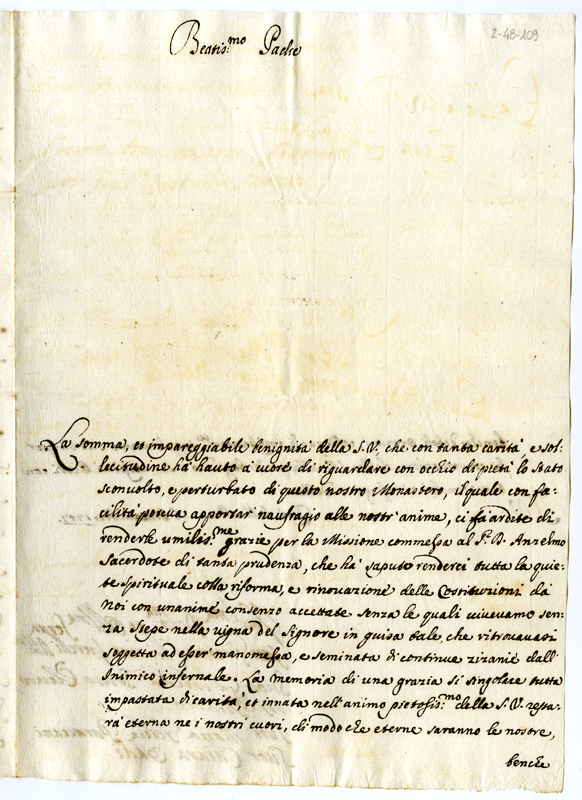 2-48-109
Beatis:mo Padre
La somma, et impareggiabile benignità della S.V. che con tanta carità, e sol:
lecitudine hà hauto à cuore di riguardare con occhio di pietà lo stato
sconvolto, e perturbato di questo nostro Monastero, il quale con fa:
cilità poteva apportar naufragio alle nostr'anime, ci fà ardite di
renderle umilis:me grazie per la Missione commessa al Sr. D. Anzelmo
Sacerdote di tanta prudenza, che hà saputo renderci tutta la quie:
te spirituale colla riforma, e rinovazione delle Costituzioni da
Noi con unanime consenzo accettate senza le quali vivevamo sen:
za siepe nella vigna del Signore in guisa tale, che ritrovavasi
soggetta ad esser manomessa, e seminata di continue zizanie dall'
Inimico infernale. La memoria di una grazia si singolare tutta
impastata di carità, et innata nell'animo pietosis:mo della S.V. resta:
rà eterna ne i nostri cuori, di modo che eterne saranno le nostre,
benche